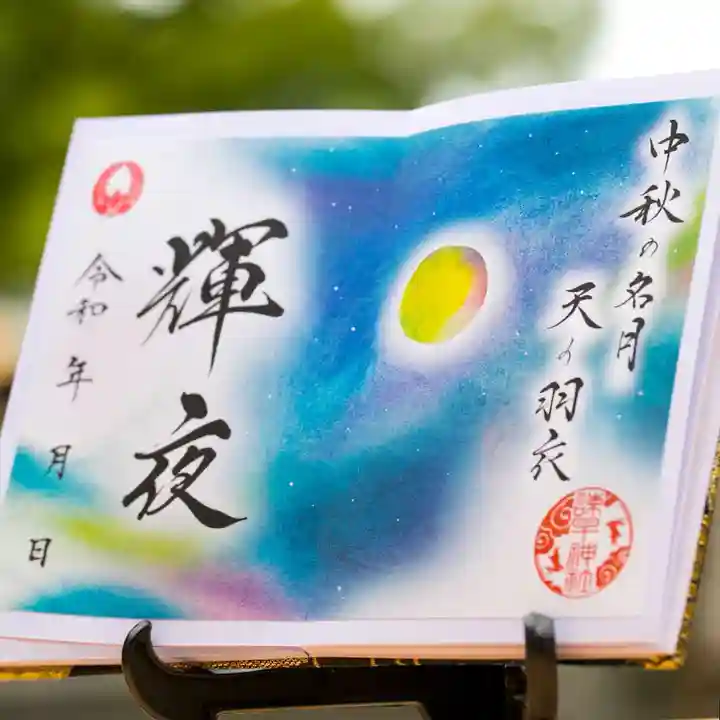 中秋の名月
天の羽衣
輝夜
令和 年 月 日
神社